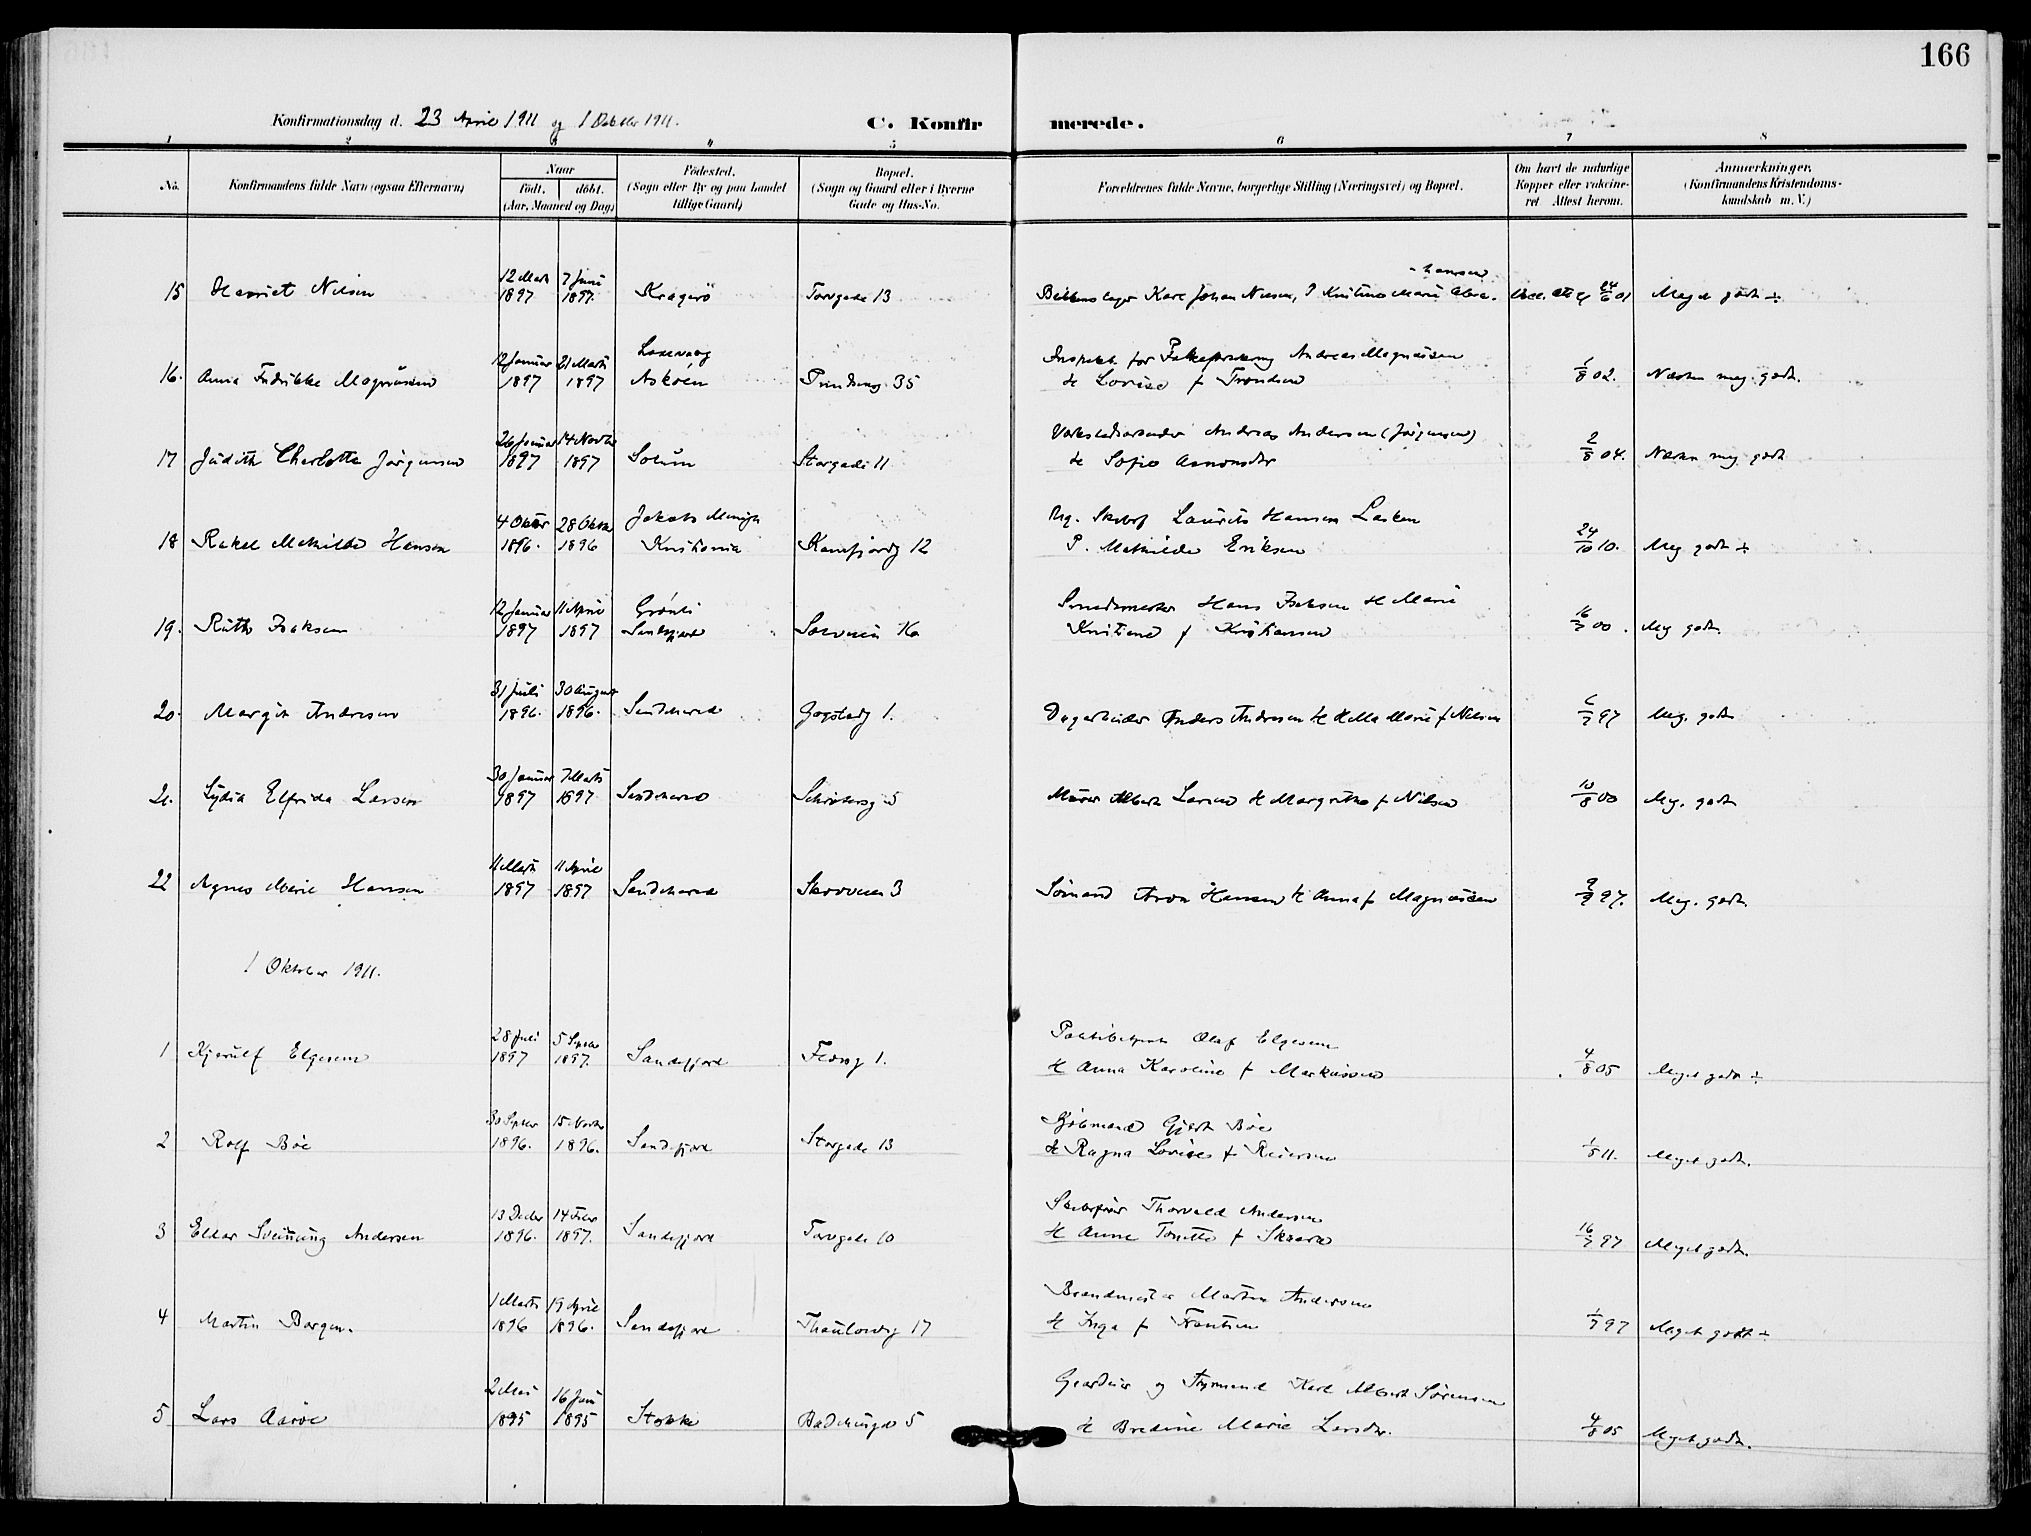 166
Konfirmationsdag d. 23 April 1911 og 1 Oktober 1911.
C. Konfirmerede.
1 2 3 4 5 6 7 8
No.
Konfirmandens fulde Navn (ogsaa Efternavn)
Naar
født. døbt.
(Aar, Maaned og Dag)
Fødested.
(Sogn eller By og paa Landet
tillige Gaard)
Bopæl.
(Sogn og Gaard eller i Byerne
Gade og Hus-No.
Forældrenes fulde Navne, borgerlige Stilling (Næringsvei) og Bopæl.
Om havt de naturlige
Kopper eller vakcine-
ret Attest herom.
Anmærkninger,
(Konfirmandens Kristendoms-
kundskab m. V.)
15 Harriet Nilsen 12 Marts 1897 7 Juni 1897 Kragerø Torvgade 13 Karl Johan Nilsen, Kristine Marie 24/6 01 Meget godt ÷
16. Anna Fredrikke Magnussen 12 Januar 1897 21 Marts 1897 Laxevaag Askøen Prindseng 35 Andreas Magnussen
& Lovise f Trondsen 1/8 02. Næsten meg. godt.
17 Judith Charlotte Jørgensen 26 Januar 1897 14 Novbr 1897 Solum Storgade 11 Andreas Andersen (Jørgensen)
& Sofie 2/8 04. Næsten meg godt
18 Rakel Mathilde Hansen 4 Oktbr 1896. 28 Oktbr 1896 Jakobs Menigh Kristiania Kamfjordg 12 Laurits Hansen
P. Mathilde Eriksen 24/10 10. Meg godt ÷
19. Ruth Isaksen 12 Januar 1897 11 April 1897 Grønli Sandefjord Hans Isaksen & Marie
Kristine f Kristiansen 16/7 00. Meg godt.
20. Margit Andresen 31 Juli 1896. 30 August 1896. Sandeherred Gogstadg 1. Dagarbeider Anders Andresen & Marie f Nilsen 6/7 97 Meg. godt
21. Lydia Elfrida Larsen 30 Januar 1897 7 Marts 1897 Sandeherred Schrøtersg 5 Murer Albert Larsen & Margrethe f Nilsen 10/8 00 Meg. godt
22 Agnes Marie Hansen 11 Marts 1897 11 April 1897 Sandeherred Skovveien 3 Sømand Hansen & Anna f Magnussen 97. Meg. godt.
1 Oktober 1911.
1 Kjerulf Elgesem 28 Juli 1897 5 Septbr 1897. Sandefjord 1. Politibetjent Olaf Elgesem
& Anna Karoline f Markussen 4/8 05 Meget godt ÷
2 Rolf Bøe 30 Septbr 1896. 15 Novbr 1896. Sandefjord Storgade 13 Kjøbmand Gjert Bøe
& Ragna Lovise f 1/8 11. Meget godt.
3 Eldar Sveinung Andersen 13 Decbr 1896. 14 Febr 1897. Sandefjord Torvgade 10 Skibsfører Thorvald Andersen
& Anne Tonette f 16/7 97 Meget godt.
4 Martin Borgen. 1 Marts 1896 19 April 1896. Sandefjord Thaulowsg 17 Brandmester Martin Andersen
& Inga f Frantsen 1/7 97 Meget godt ÷
5 Lars Aarøe 2 Mai 1895 16 Juni 1895 Stokke 5 Gaardeier og Styrmand Karl Albert Sørensen
& Bredine Marie Larsdtr. 4/8 05 Meget godt.